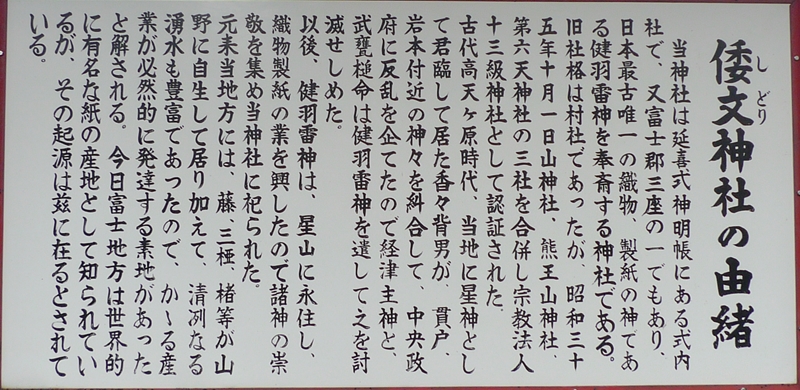 倭文神社の由緒
しどり
当神社は延喜式神明帳にある式内
社で、又富士郡三座の一でもあり、
日本最古唯一の織物、製紙の神であ
る健羽雷神を奉斎する神社である。
旧社格は村社であったが、昭和三十
五年十月一日山神社、熊王山神社、
第六天神社の三社を合併し宗教法人
十三級神社として認証された。
古代高天ヶ原時代、当地に星神とし
て君臨して居た香々背男が、貫戸、
岩本付近の神々を糾合して、中央政
府に反乱を企てたので経津主神と、
武甕槌命は健羽雷神を遣して之を討
滅せしめた。
以後、健羽雷神は、星山に永住し、
織物製紙の業を興したので諸神の崇
敬を集め当神社に祀られた。
元来当地方には、藤、三椏、楮等が山
野に自生して居り加えて、清冽なる
湧水も豊富であったので、かゝる産
業が必然的に発達する素地があった
と解される。今日富士地方は世界的
に有名な紙の産地として知られてい
るが、その起源は茲に在るとされて
いる。